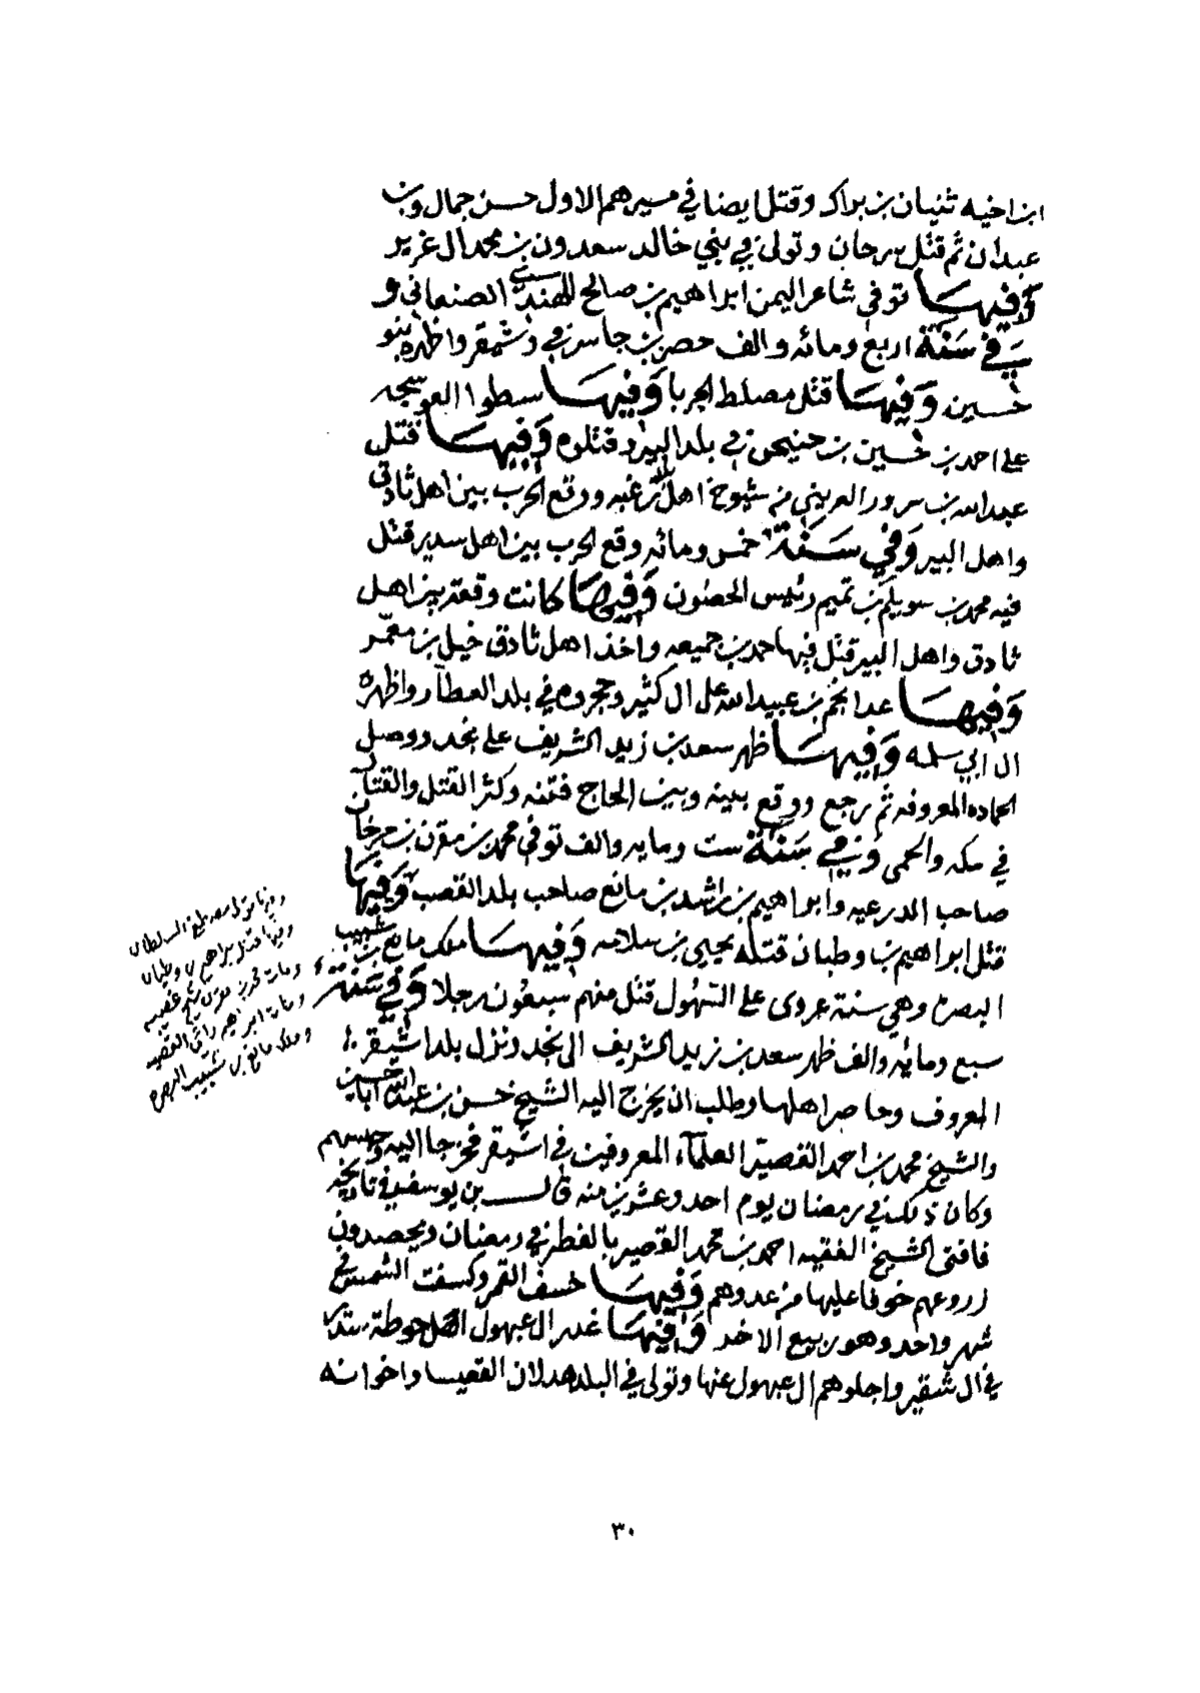 ابن اخيه ثنيان بن براك وقتل ايضا في مسيرهم الاول حسن جمال وبن
عبدان ثم قتل سرحان وتولى في بني خالد سعدون بن محمد ال غرير
وفيها توفي شاعر اليمن ابراهيم بن صالح الهندي الصنعاني و
في سنة اربع ومائه والف حصر بن جاسر في اشيقر واظهره بنو
حسين وفيها قتل مصلط الجربا وفيها سطوا العوسجه
على احمد بن حسين بن حنيحن في بلد البير وقتلوه وفيها قتل
عبد الله بن سرور العريني من شيوخ اهل رغبه ووقع الحرب بين اهل ثادق
واهل البير وفي سنة خمس ومائه وقع الحرب بين اهل سدير قتل
فيه محمد بن سويلم بن تميم رئيس الحصون وفيها كانت وقعة بين اهل
ثادق واهل البير قتل فيها حمد بن جميعه واخذ اهل ثادق خيل بن معمر
وفيها عدا نجم بن عبيد الله على ال كثير وحجروه في بلد العطار واظهره
ال ابي سلمه وفيها ظهر سعد بن زيد الشريف على نجد ووصل
الحماده المعروفه ثم رجع ووقع بينه وبين الحاج فتنه وكثر القتل والقتال
في مكه والحمى وفي سنة ست ومايه والف توفي محمد بن مقرن بن مرخان
صاحب الدرعيه وابراهيم بن راشد بن مانع صاحب بلد القصب وفيها
قتل ابراهيم بن وطبان قتله يحيى بن سلامه وفيها ملك مانع بن شبيب
البصره وهي سنة عروى على السهول قتل منهم سبعون رجلا وفي سنة
سبع ومائه والف ظهر سعد بن زيد الشريف الى نجد ونزل بلد اشيقر
المعروف وحاصر اهلها وطلب ان يخرج اليه الشيخ حسن بن عبد الله ابا حسين
والشيخ محمد بن احمد القصير العلماء المعروفين في اشيقر فخرجا اليه وحبسهم
وكان ذلك في رمضان يوم احد وعشرين منه قال بن يوسف في تاريخه
فافتى الشيخ الفقيه احمد بن محمد القصير بالفطر في رمضان ويحصدون
زروعهم خوفا عليها من عدوهم وفيها خسف القمر وكسفت الشمس في
شهر واحد وهو ربيع الاخر وفيها غدر ال عبهول اهل حوطة سدير
في ال شقير واجلوهم ال عبهول عنها وتولى في البلد هدلان القعيسا واخوانه
وفيها تولى مصطفى السلطان
وفيها قتل ابراهيم بن وطبان
ومات محمد بن مقرن
ومات ابراهيم راعي القصب
وملك مانع بن شبيب البصره
٣٠